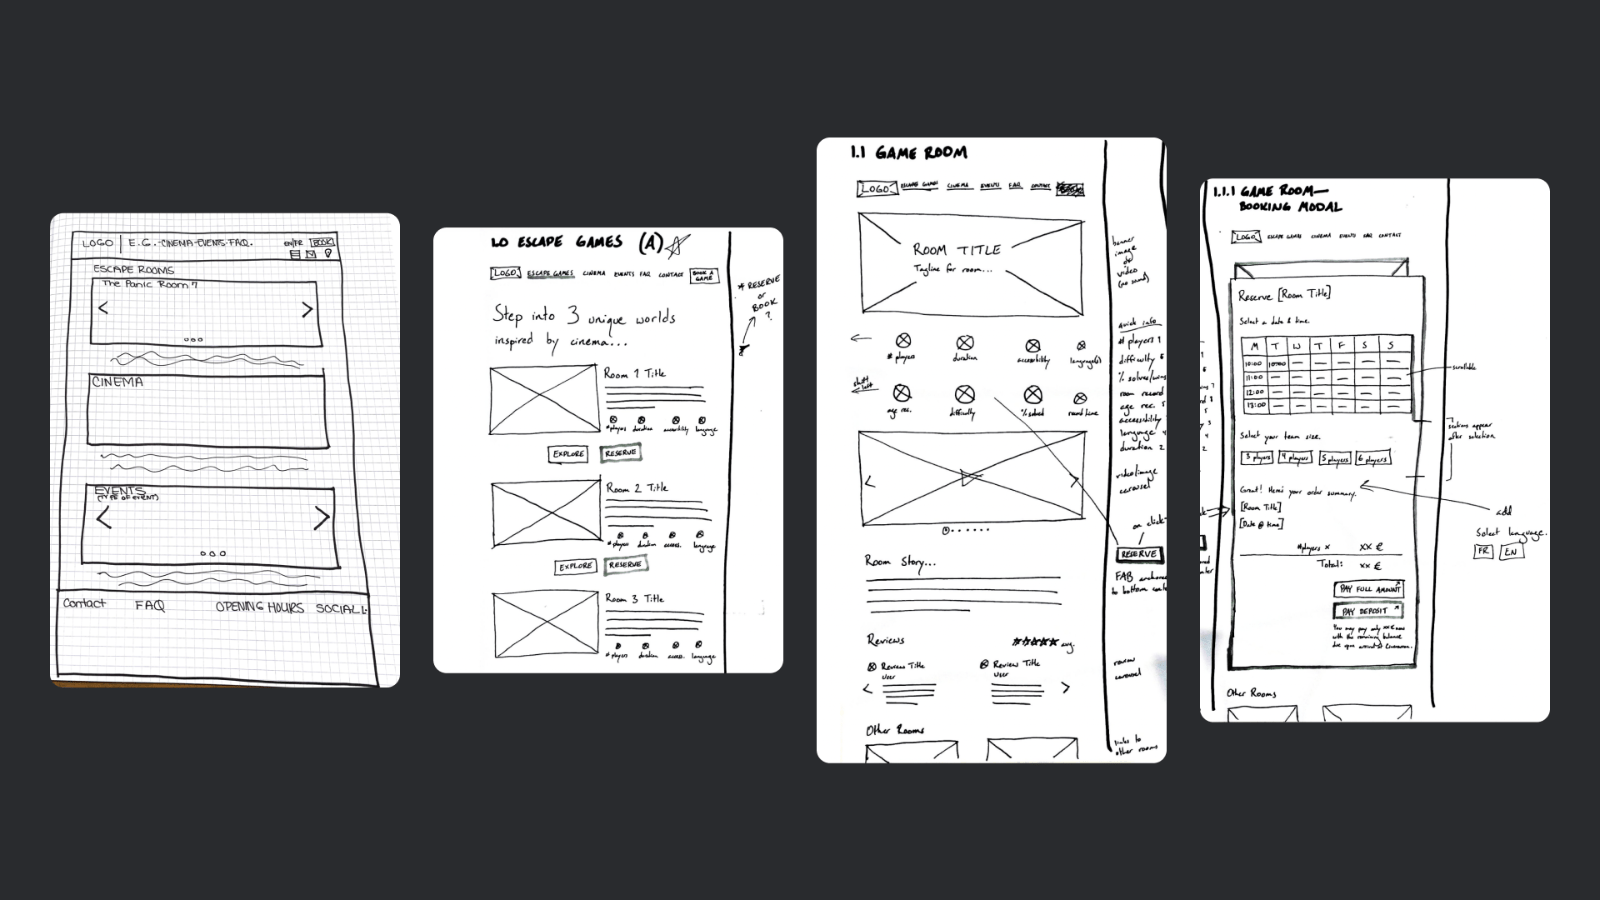 LOGO | E.G.-CINEMA-EVENTS-FAQ. EN/FR BOOK
ESCAPE ROOMS
The Panic Room 7
CINEMA
EVENTS
(TYPE OF EVENT)
Contact FAQ OPENING HOURS SOCIAL
1.0 ESCAPE GAMES (A)
LOGO ESCAPE GAMES CINEMA EVENTS FAQ CONTACT BOOK A GAME
Step into 3 unique worlds
inspired by cinema...
Room 1 Title
# players duration accessibility language
EXPLORE RESERVE
Room 2 Title
# players duration access. language
EXPLORE RESERVE
Room 3 Title
# players duration access. language
* RESERVE
or
BOOK
?
1.1 GAME ROOM
LOGO ESCAPE GAMES CINEMA EVENTS FAQ CONTACT
ROOM TITLE
Tagline for room...
# players duration accessibility language(s)
shift left
age rec. difficulty % solved
Room Story...
Reviews avg.
Review Title Review Title
User User
Other Rooms
banner
image
or
video
(no sound)
quick info
# players 1
difficulty 6
% solves/wins
room record
age rec. 5
accessibility
language 4
duration 2
video/image
carousel
on click
RESERVE
FAB anchored
to bottom
review
carousel
links to
other rooms
1.1.1 GAME ROOM—
BOOKING MODAL
LOGO ESCAPE GAMES CINEMA EVENTS FAQ CONTACT
Reserve [Room Title]
Select a date & time
M T W T F S S
10:00 10:00
11:00
12:00
13:00
scrollable
Select your team size.
3 players 4 players 5 players 6 players
sections appear
after selection
Great! Here's your order summary.
[Room Title]
[Date @ time]
#players x xx €
Total: xx €
PAY FULL AMOUNT
PAY DEPOSIT
You may pay only xx € now
with the remaining balance
due upon arrival
add
Select language.
FR EN
Other Rooms